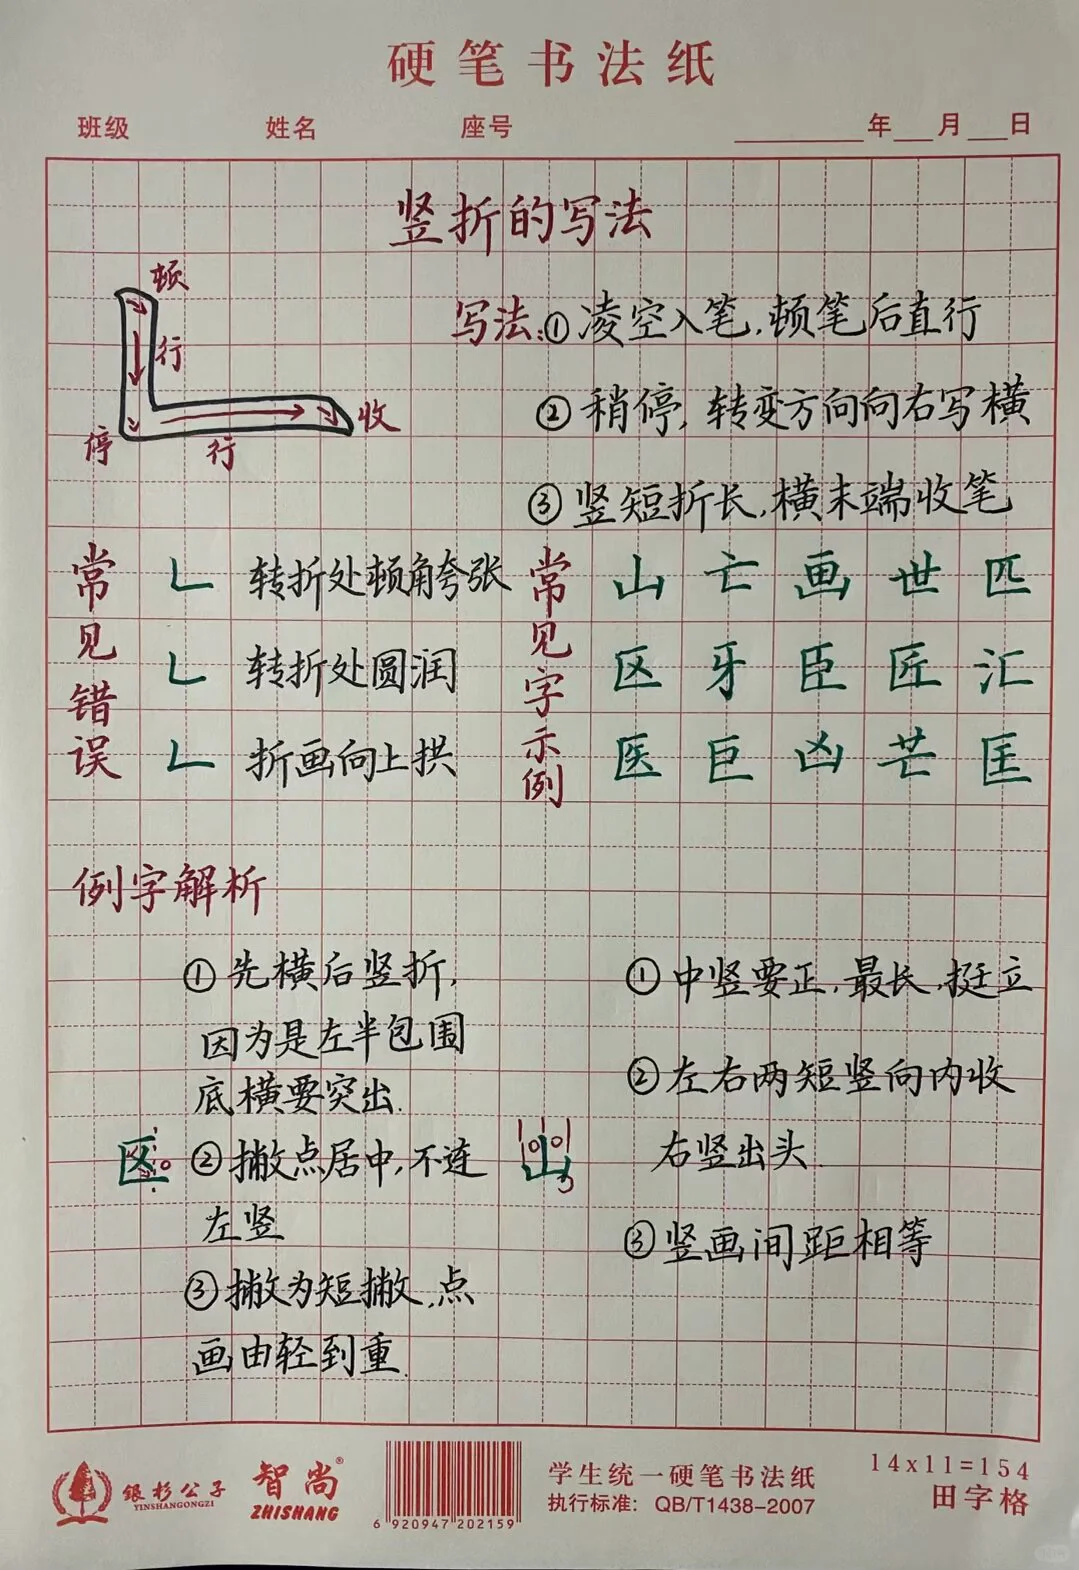 硬笔书法纸
班级 姓名 座号 年 月 日
竖折的写法
顿
行
停
行
收
写法:①凌空入笔,顿笔后直行
②稍停,转变方向向右写横
③竖短折长,横末端收笔
常见错误
转折处顿角夸张
转折处圆润
折画向上拱
常见字示例
山 亡 画 世 匹
区 牙 臣 匠 汇
医 巨 凶 芒 匡
例字解析
区
①先横后竖折,
因为是左半包围
底横要突出.
②撇点居中,不连
左竖
③撇为短撇,点
画由轻到重.
山
①中竖要正,最长,挺立
②左右两短竖向内收
右竖出头.
③竖画间距相等
银杉公子
YINSHANGONGZI
智尚®
ZHISHANG
6 920947 202159
学生统一硬笔书法纸
执行标准: QB/T1438-2007
14x11=154
田字格